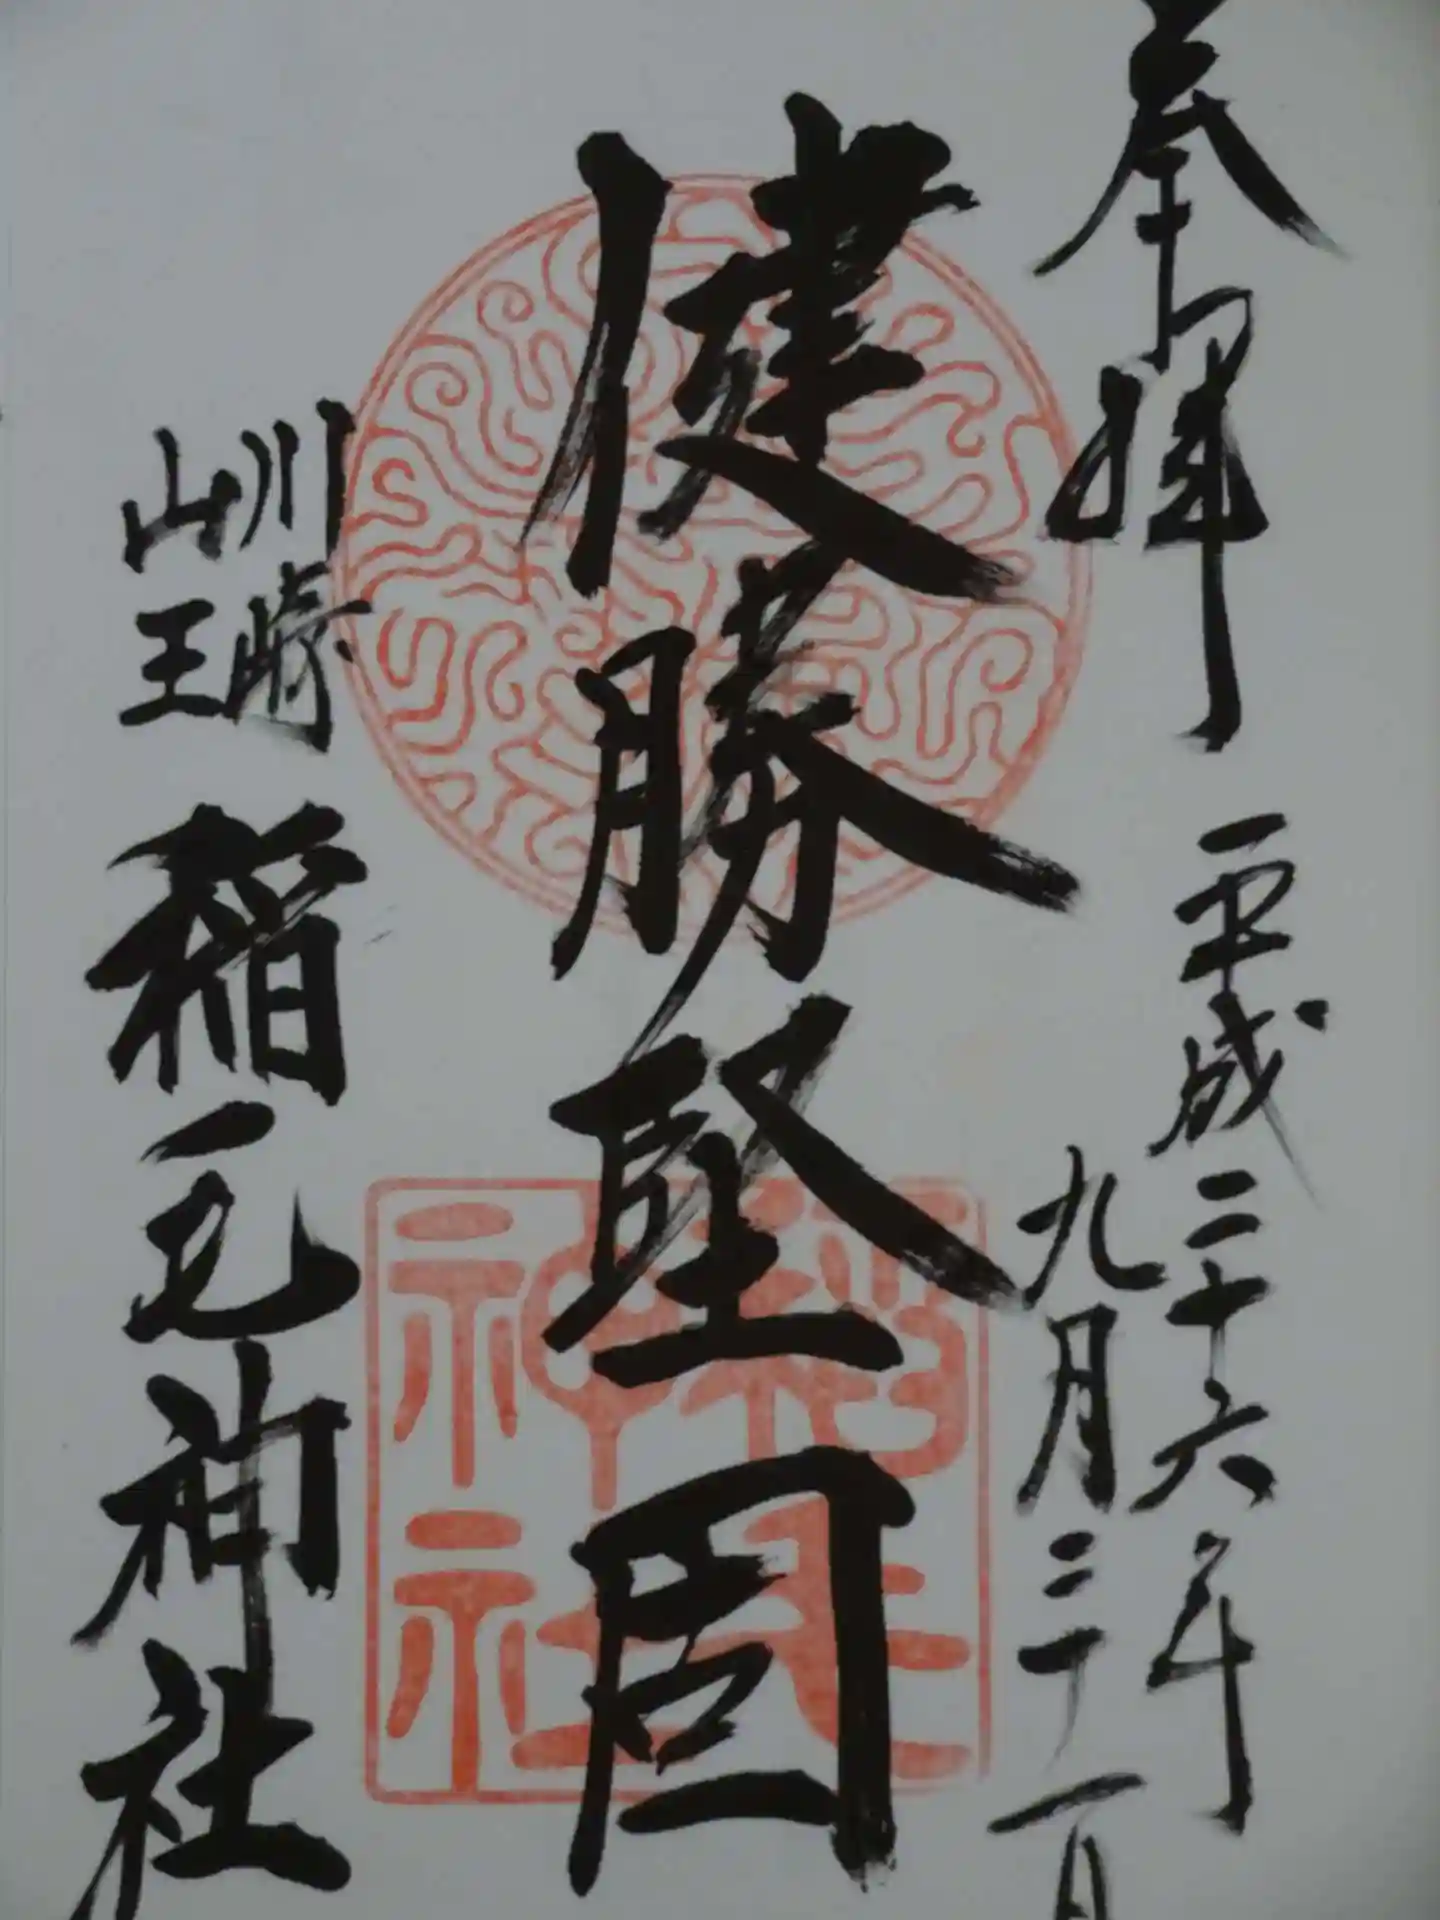 奉拝
平成二十六年
九月二十一日
健勝堅固
川崎
山王
稲毛神社
稲毛
神社